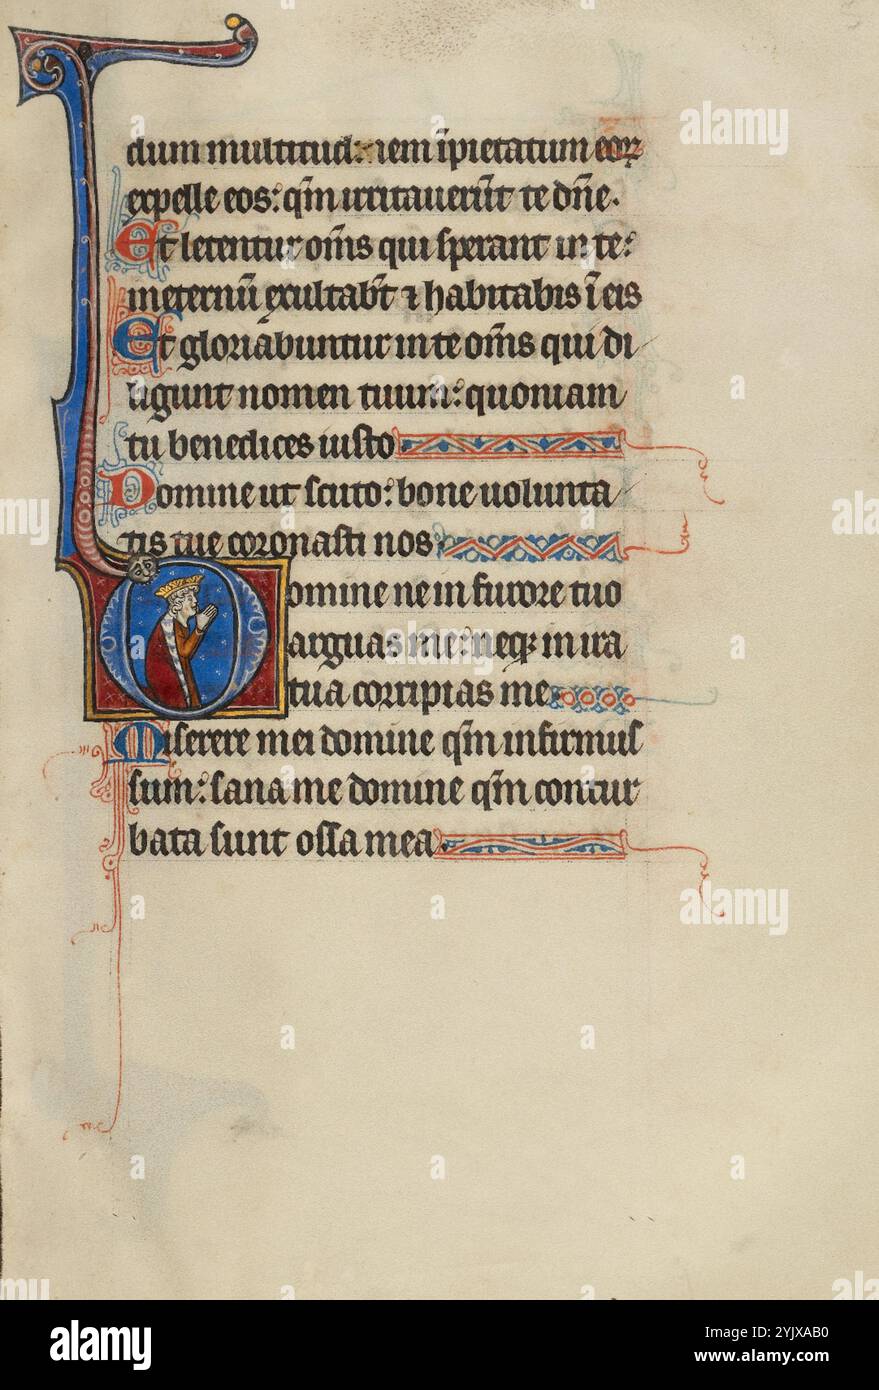 dum multitudinem ĩpietatum eoꝝ
expelle eos: qm̃ irritauerũt te dñe.
Et letentur om̃s qui sperant in te:
in eternũ exultabũt ⁊ habitabis ĩ eis
Et gloriabuntur in te om̃s qui di
ligunt nomen tuum: quoniam
tu benedices iusto
Domine ut scuto: bone uolunta
tis tue coronasti nos.
Domine ne in furore tuo
arguas me: neqꝫ in ira
tua corripias me
Miserere mei domine qm̃ infirmus
sum: sana me domine qm̃ contur
bata sunt ossa mea.
alamy
Image ID: 2YJXAB0
www.alamy.com